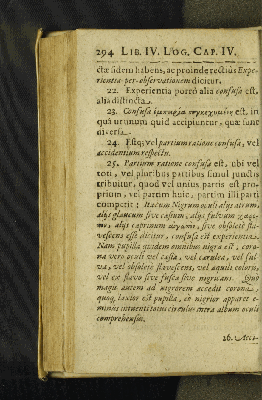 294 LIB. IV. LOG. CAP. IV.
ctæ fidem habens, ac proinde rectius Expe-
rientia-per-observationem dicitur.
22. Experientia porrò alia confusa est,
alia distincta.
23. Confusa est, in
quâ unum quid accipiuntur, quæ sunt
diversa.
24. Estq; vel partium ratione confusa, vel
accidentium respectu.
25. Partium ratione confusa est, ubi vel
toti, vel pluribus partibus simul junctis
tribuitur, quod vel unius partis est pro-
prium, vel partim huic, partim illi parti
competit: Itacum Nigrum oculi aliàs atrum,
aliàs glaucum sive cæsium, aliàs fulvum
aliàs caprinum sive obsoletè fla-
vescens esse dicitur, confusa est experientia.
Nam pupilla quidem omnibus nigra est, coro-
na verò oculi vel cæsia, vel cærulea, vel ful-
va, vel obsoletè flavescens, vel aquili coloris,
vel ex flavo sive fusco sive nigricans. Quo
magis autem ad nigrorem accedit corona,
quoq; laxior est pupilla, eò nigrior apparet
minùs intuenti totus circulus intra album oculi
comprehensus.
26. Acci-